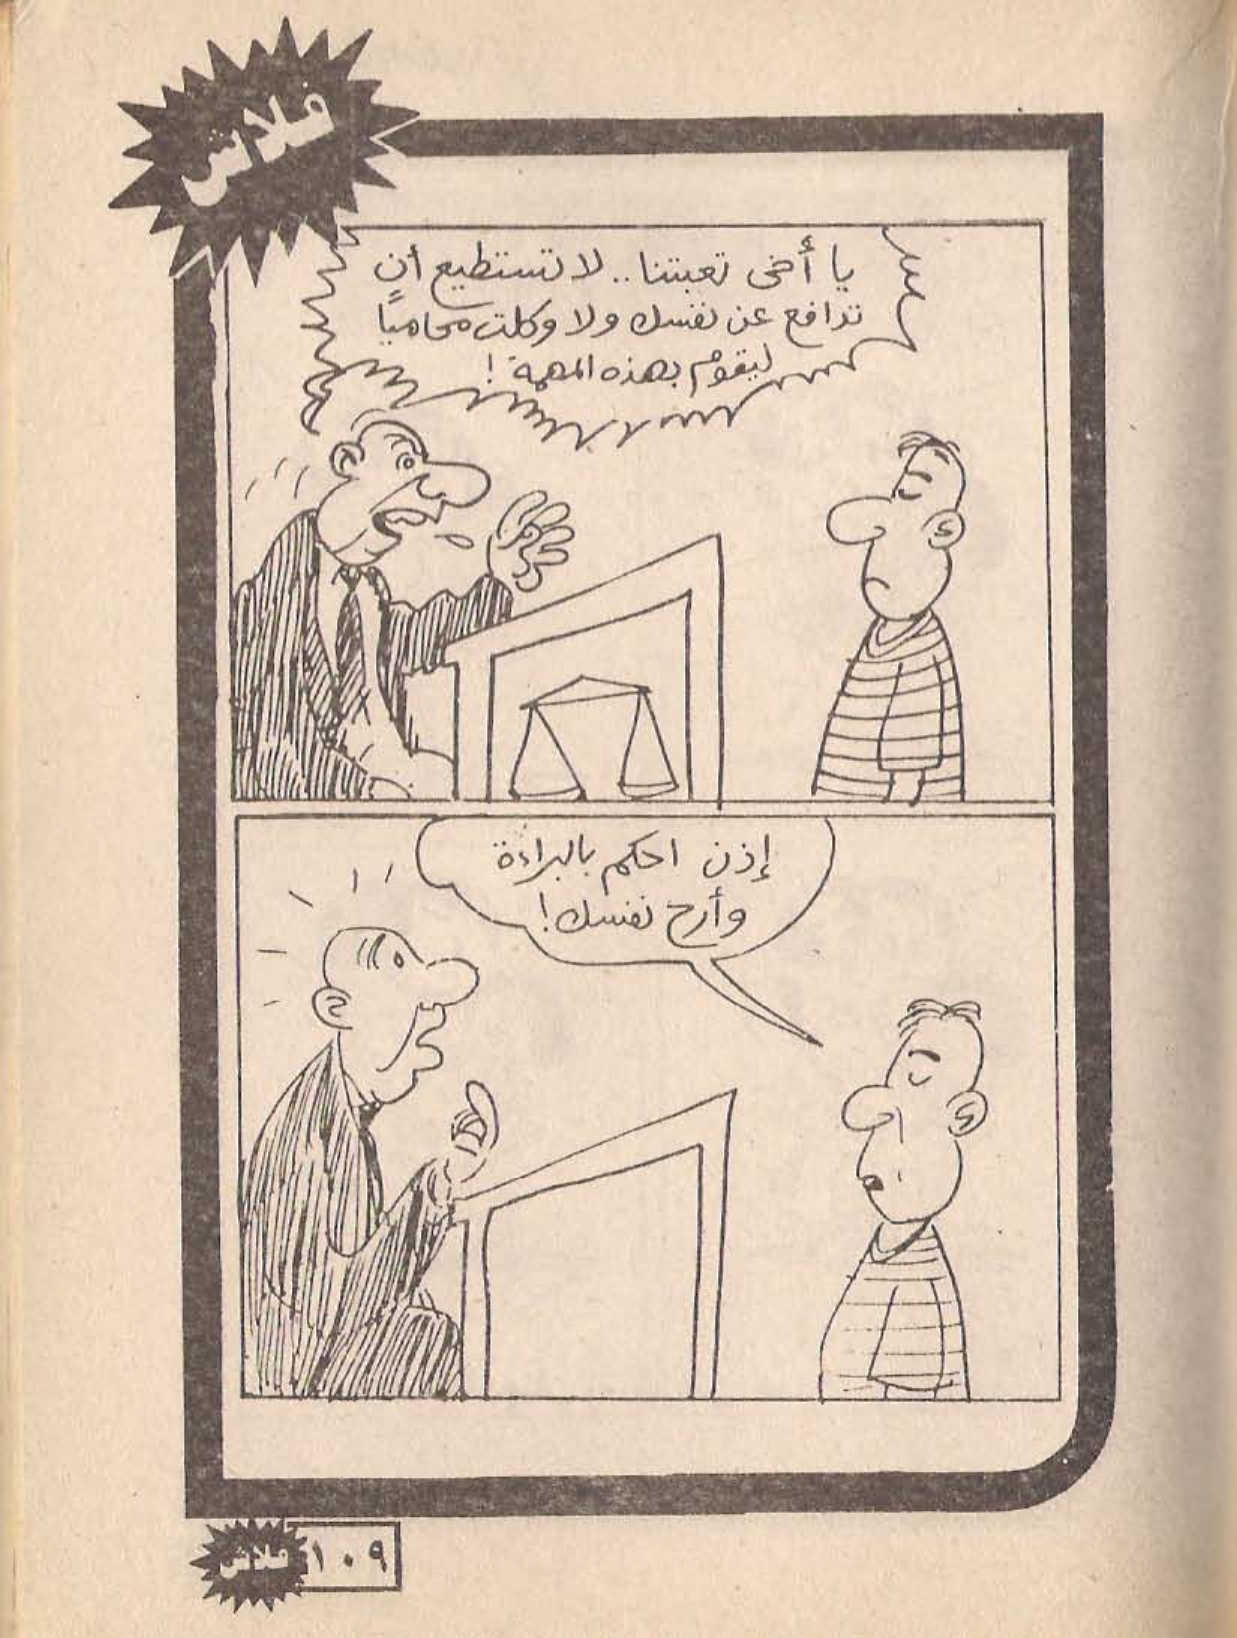 فلاش
يا أخى تعبتنا.. لا تستطيع أن
تدافع عن نفسك ولا وكلت محاميًا
ليقوم بهذه المهمة !
إذن احكم بالبراءة
وأرح نفسك !
فلاش ١٠٩